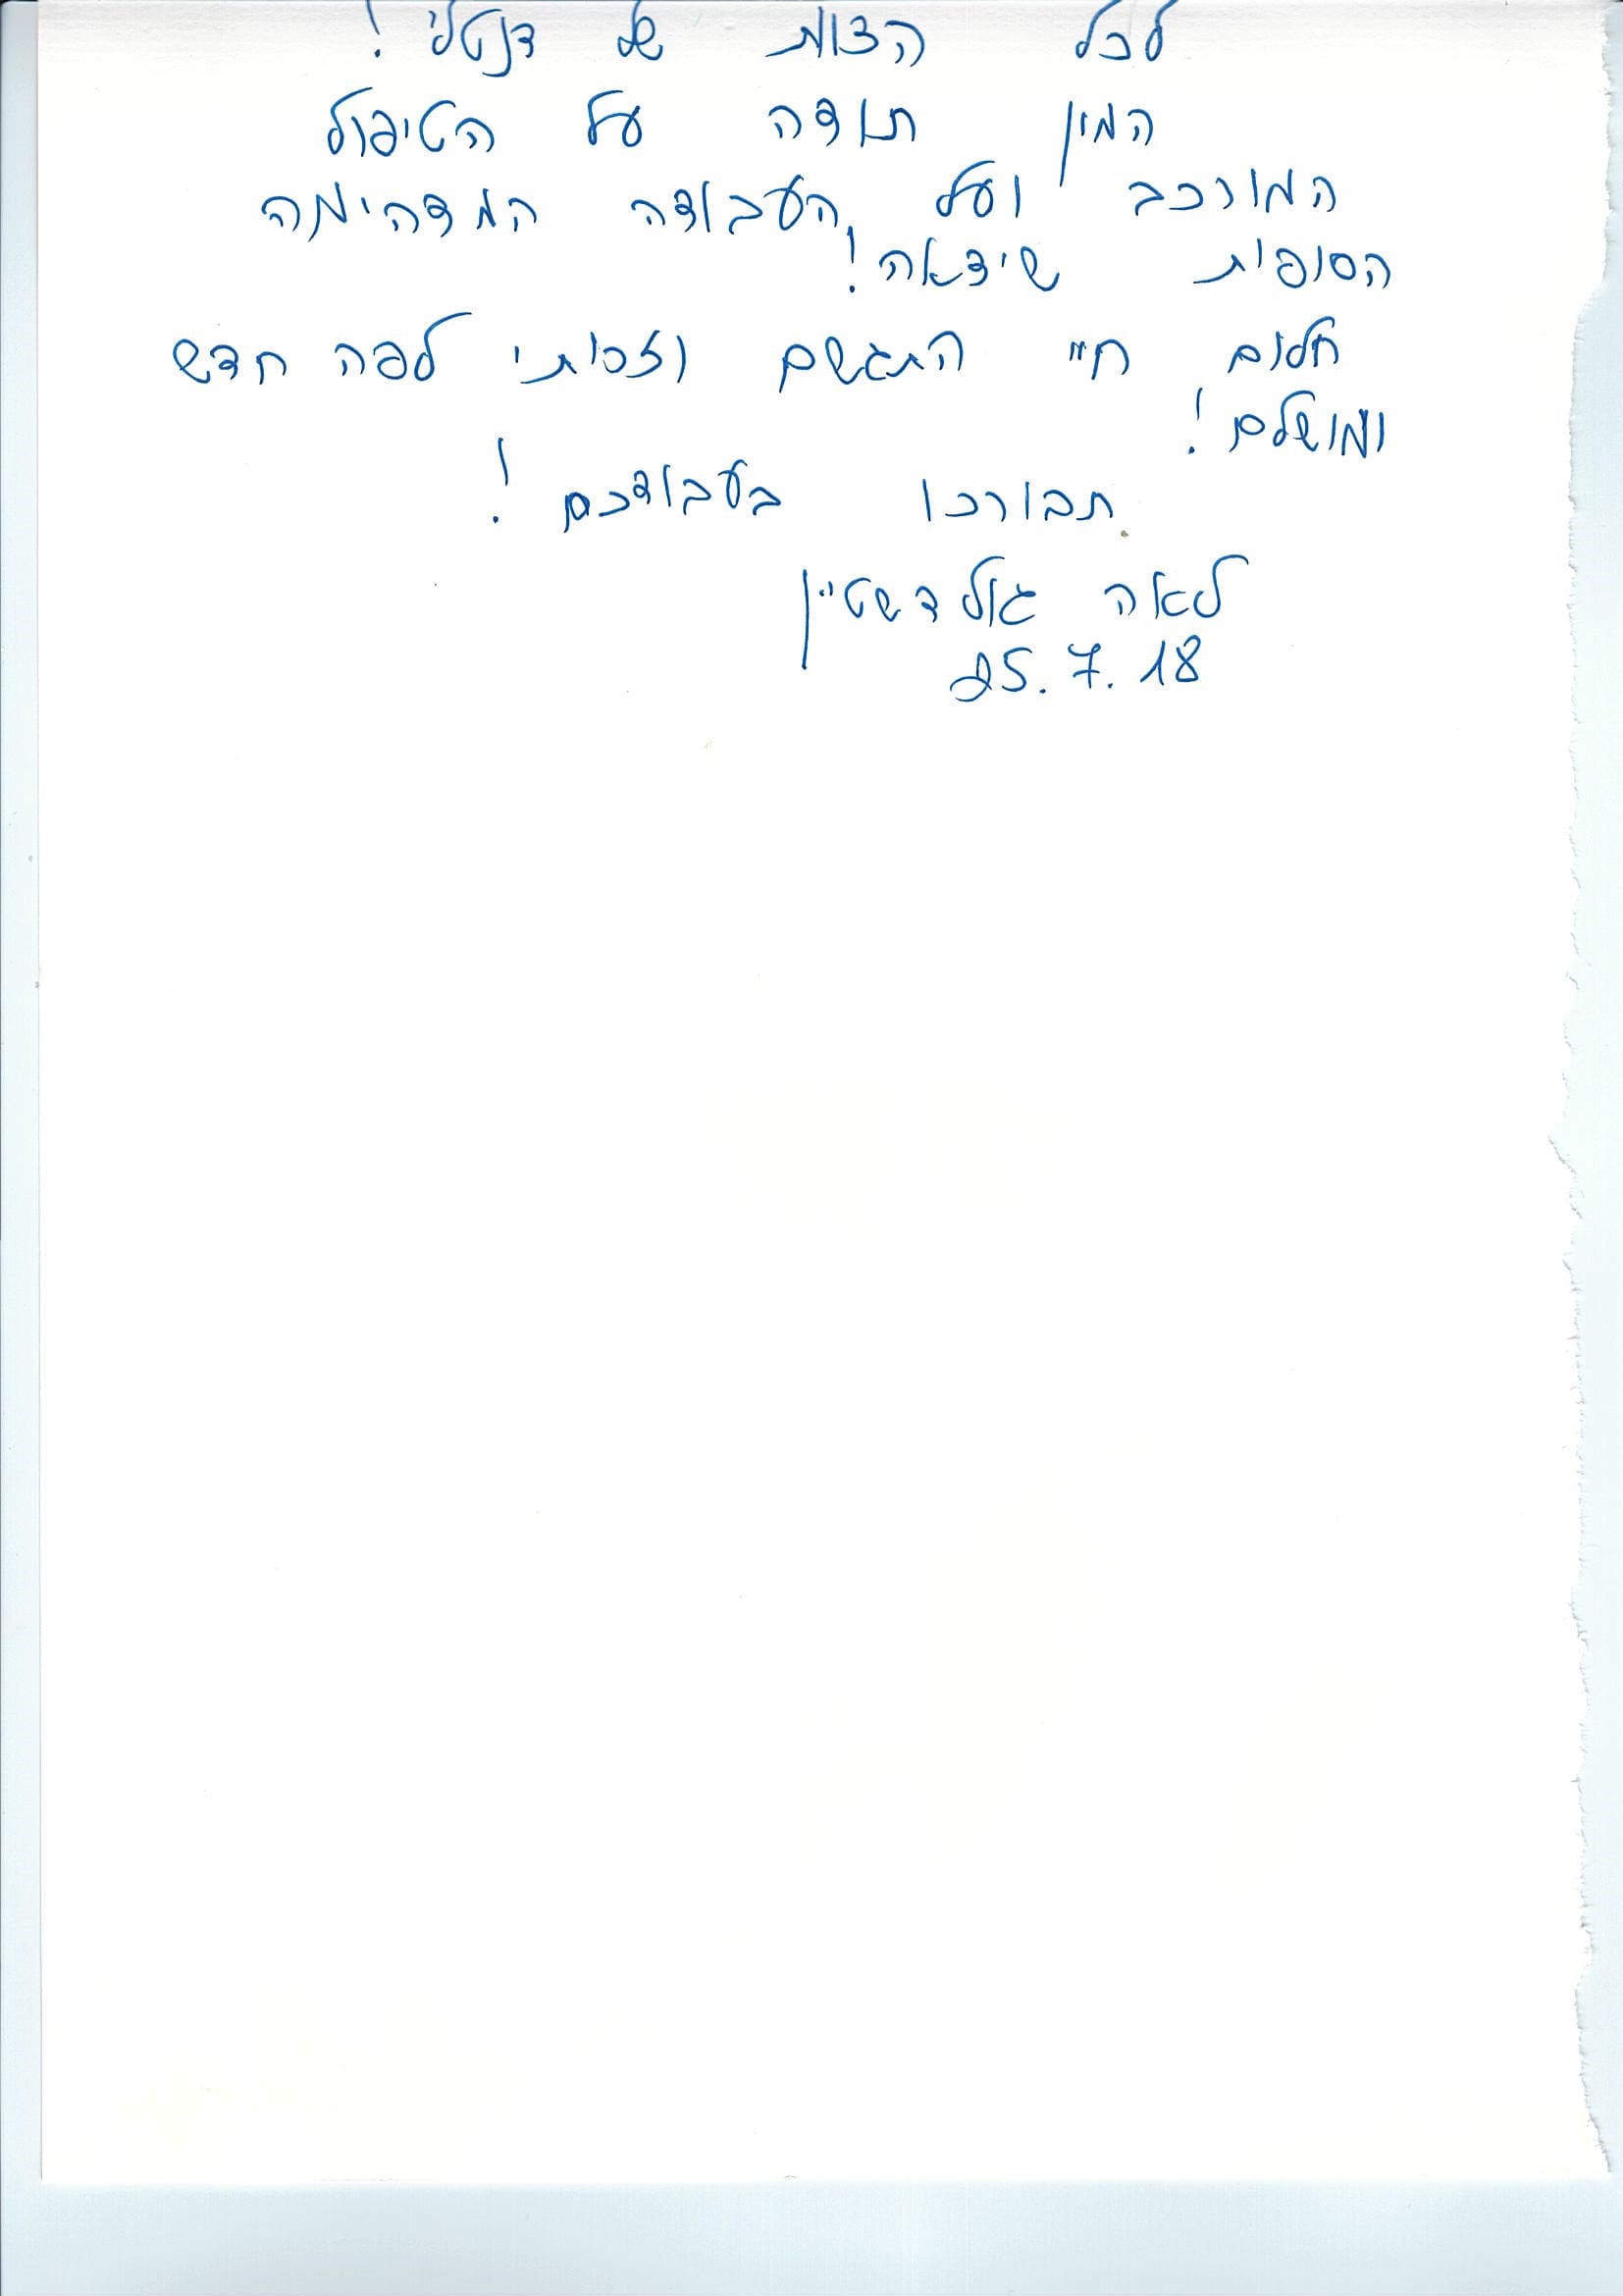 לכל הצוות של דנטלי!
המון תודה על הטיפול
המורכב ועל העבודה המדהימה
הסופית שיצאה!
חלום חיי התגשם וזכותי לפה חדש
ומושלם!
תבורכו בעבודכם!
לאה גולדשטיין
25.7.18